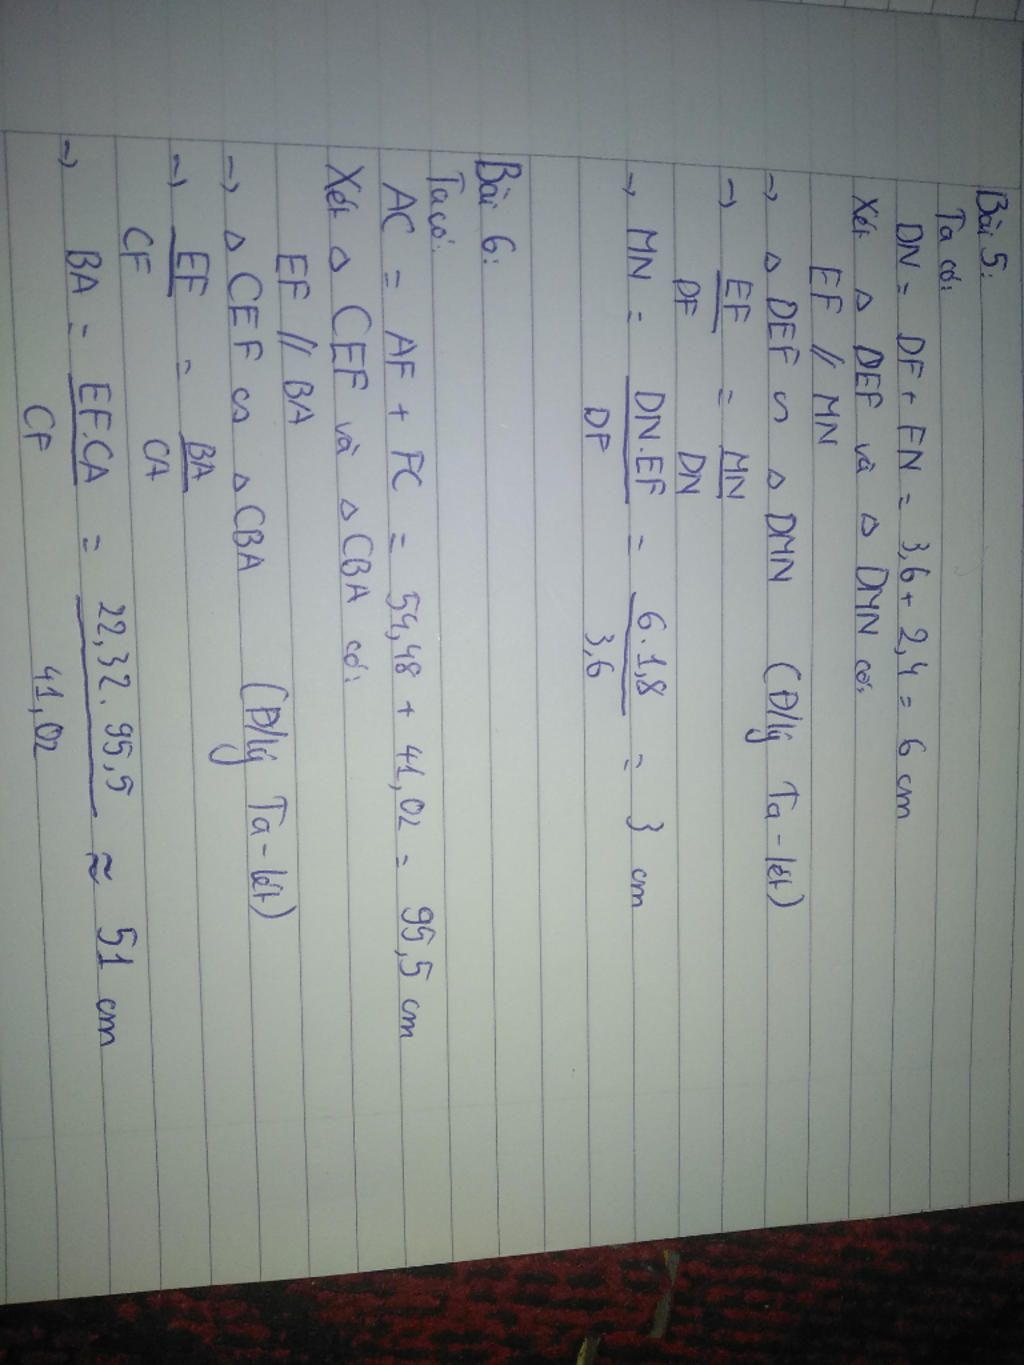 Bài 5:
Ta có:
DN = DF + FN = 3,6 + 2,4 = 6 cm
Xét △ DEF và △ DMN có:
EF // MN
→ △ DEF ∽ △ DMN (Đ/lý Ta-lét)
→ EF/DF = MN/DN
→ MN = DN.EF/DF = 6.1,8/3,6 = 3 cm
Bài 6:
Ta có:
AC = AF + FC = 54,48 + 41,02 = 95,5 cm
Xét △ CEF và △ CBA có:
EF // BA
→ △ CEF ∽ △ CBA (Đ/lý Ta-lét)
→ EF/CF = BA/CA
→ BA = EF.CA/CF = 22,32.95,5/41,02 ≈ 51 cm